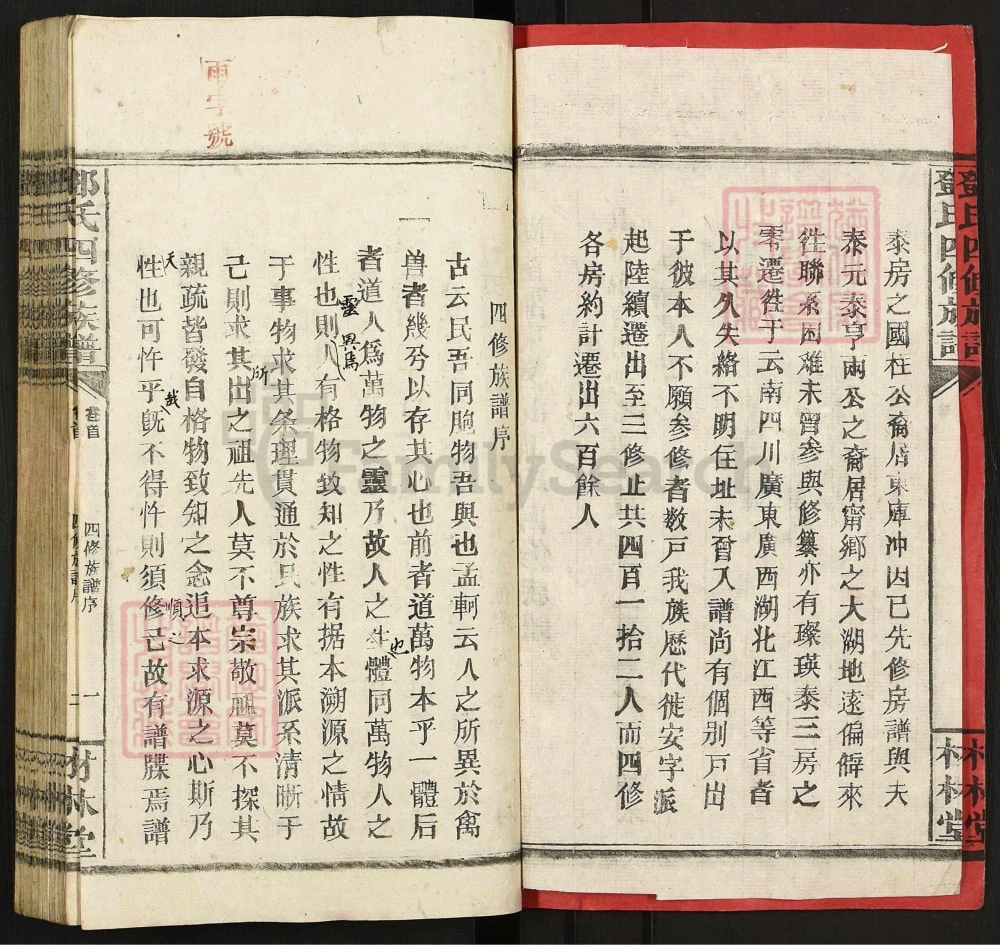 鄧氏四修族譜
泰房之國柱公裔居東庫冲因已先修房譜與夫
泰元泰亨兩公之裔居甯鄉之大湖地遠偏僻來
徃聯系困难未曾参與修纂亦有璨瑛泰三房之
零遷徃于云南四川廣東廣西湖北江西等省者
以其久失絡不明住址未曾入譜尚有個別戸出
于彼本人不願参修者数戸我族歷代徙安字派
起陸續遷出至三修止共四百一拾二人而四修
各房約計遷出六百餘人
材林堂
雨字號
四修族譜序
古云民吾同胞物吾與也孟軻云人之所異於禽
兽者幾兮以存其心也前者道萬物本乎一體后
者道人爲萬物之靈乃故人之生體同萬物人之
也
性也則人有格物致知之性有据本溯源之情故
靈異焉
于事物求其条理貫通於民族求其派系清晰于
己則求其出之祖先人莫不尊宗敬祖莫不探其
所
親疏皆發自格物致知之念追本求源之心斯乃
天
性也可忤乎旣不得忤則須修己故有譜牒焉譜
哉
順之
鄧氏四修族譜
卷首
四修族譜序
一
材林堂
FamilySearch